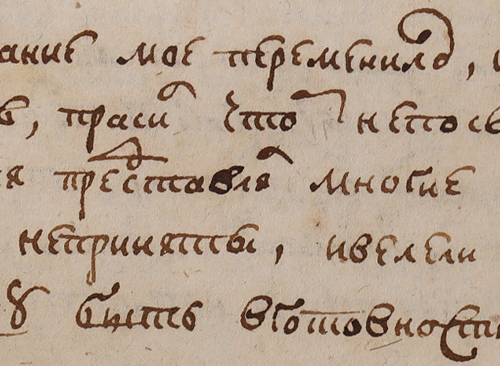 ание мое переменило,
праси что непось
представля многие
неприняты, ивелели
у быть вготовности